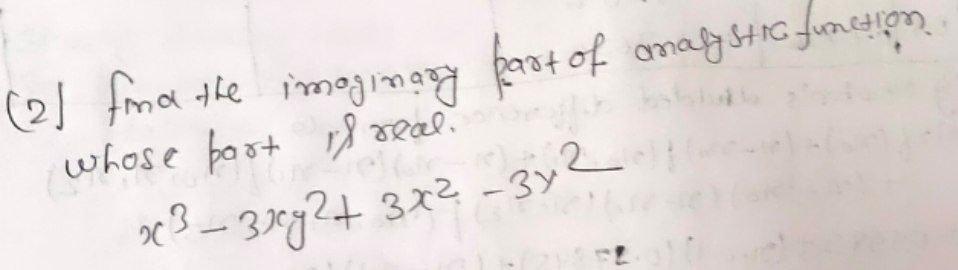 (2) find the imaginary part of analystic function.
whose part is real.
x³ - 3xy² + 3x² - 3y²